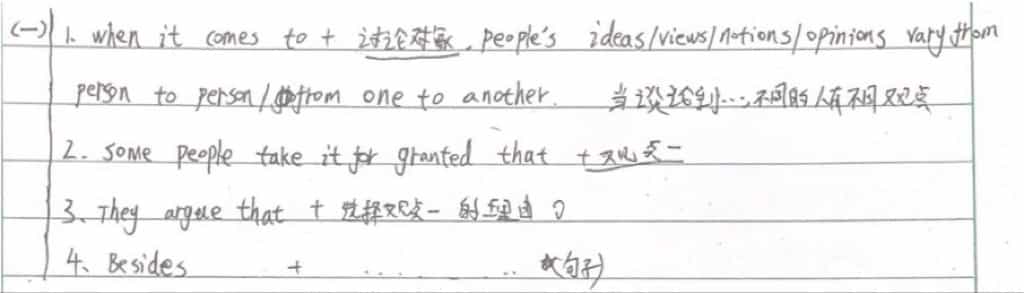 (一) 1. when it comes to + 讨论对象, people's ideas/views/notions/opinions vary from
person to person/from one to another. 当谈论到…,不同的人有不同观点
2. some people take it for granted that + 观点一
3、They argue that + 选择观点一的理由①
4、Besides + ........ (句子)